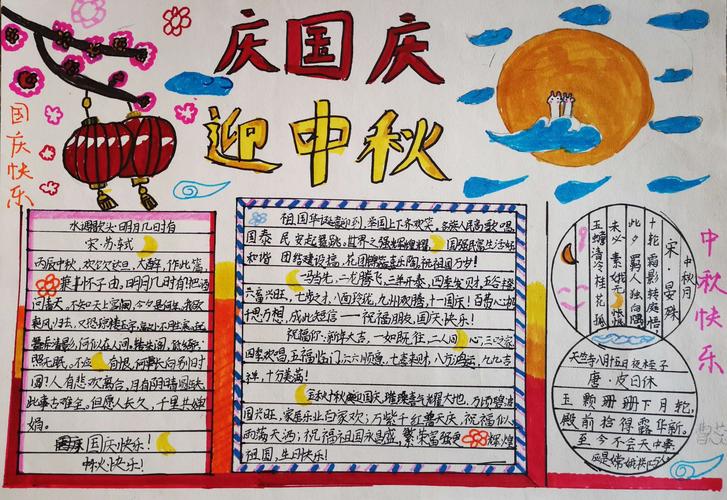 庆国庆
迎中秋
国庆快乐
水调歌头·明月几时有
宋·苏轼
丙辰中秋,欢饮达旦,大醉,作此篇,
兼怀子由,明月几时有?把酒
问青天。不知天上宫阙,今夕是何年,我欲
乘风归去,又恐琼楼玉宇,高处不胜寒,起
舞弄清影,何似在人间。转朱阁,低绮户
照无眠。不应 有恨,何事长向别时
圆?人有悲欢离合,月有阴晴圆缺
此事古难全。但愿人长久,千里共婵
娟。
国庆快乐!
中秋快乐!
祖国华诞喜迎到,举国上下齐欢笑,各族人民高歌唱,
国泰民安
世界之强 国强民富生活好
和谐 团结建设搞, 祝祖国万岁!
一马当先,二龙腾飞,三羊开泰,四季发财,五谷丰
六畜兴旺,七 ,八面玲珑,九州欢腾,十一国庆!百 心
千思万想,成此短信——祝福朋友,国庆快乐!
祝福你:新年大吉,一如既往,二人同心 三
四季欢唱 五福临门,六六顺意,七 ,八方鸿运,九九吉
祥,十分美满!
国兴旺,家居乐业百家欢;万紫千红普天庆,祝福似
雨满天洒;祝福祖国永昌盛,繁荣富强更辉煌
祖国,生日快乐!
中秋月
宋·晏殊
十轮霜影转庭梧
此夕羁人独向隅
未必素娥无怅恨
玉蟾清冷桂花孤
中秋快乐
天竺寺八月十五日夜桂子
唐·皮日休
玉颗珊珊下月轮,
殿前拾得露华新。
至今不会天中事,
应是嫦娥掷与人